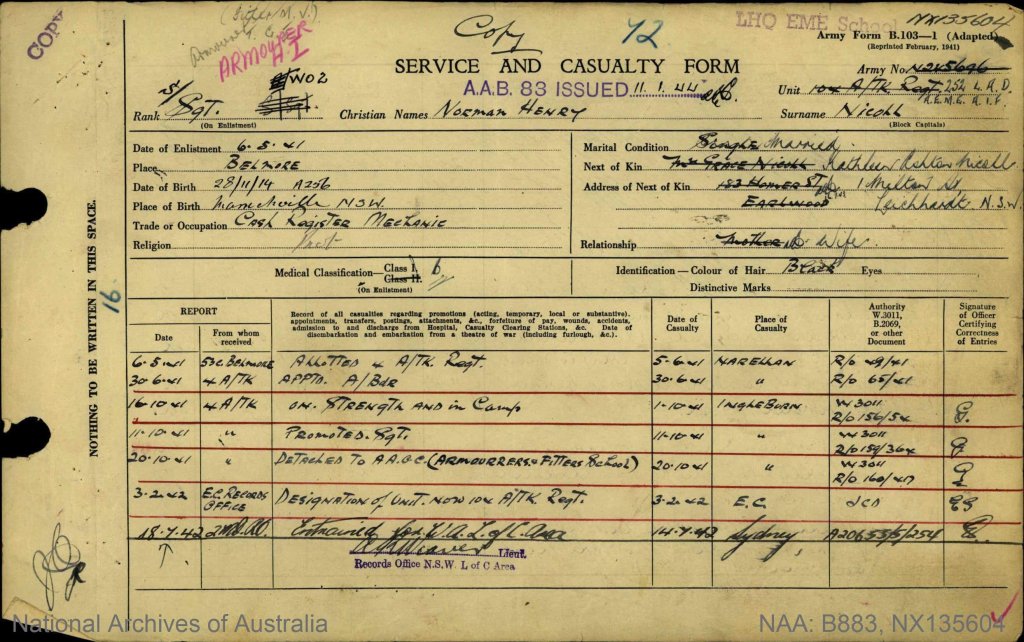 COPY
(Fitter M.V.)
ARMOURER
A I
Copy
72
LHQ EME School
NX135604
Army Form B.103—1 (Adapted)
(Reprinted February, 1941)
SERVICE AND CASUALTY FORM
A.A.B. 83 ISSUED 11.1.44
Army No. N245696
Unit 104 A/TK Regt. 252 L.A.D.
A.E.M.E. A.I.F.
WO2
Rank Sgt.
(On Enlistment)
Christian Names NORMAN HENRY
Surname NICOLL
(Block Capitals)
Date of Enlistment 6.5.41
Place BELMORE
Date of Birth 28/11/14 A256
Place of Birth Marrickville N.S.W.
Trade or Occupation CASH REGISTER MECHANIC
Religion Prot
Marital Condition Single Married
Next of Kin Mrs GRACE NICOLL Kathleen Ashton Nicoll
Address of Next of Kin 183 HOMER ST 1 Milton St
EARLWOOD Leichhardt N.S.W.
Relationship Mother Wife
Medical Classification—Class I.
Class II.
(On Enlistment)
Identification—Colour of Hair Black Eyes
Distinctive Marks
NOTHING TO BE WRITTEN IN THIS SPACE.
16
REPORT
Date
From whom received
Record of all casualties regarding promotions (acting, temporary, local or substantive), appointments, transfers, postings, attachments, &c., forfeiture of pay, wounds, accidents, admission to and discharge from Hospital, Casualty Clearing Stations, &c. Date of disembarkation and embarkation from a theatre of war (including furlough, &c.).
Date of Casualty
Place of Casualty
Authority W.3011, B.2069, or other Document
Signature of Officer Certifying Correctness of Entries
6.5.41 BELMORE ALLOTTED 4 A/TK Regt. 5-6.41 NARELLAN R/O 49/41
30.6.41 4 A/TK APPTD. A/Bdr 30.6.41 " R/O 65/41
16-10-41 4 A/TK ON STRENGTH AND in Camp 1-10-41 INGLEBURN W3011
R/O 156/54
11-10-41 " PROMOTED Sgt. 11-10-41 " W3011
R/O 159/364
20.10.41 " DETACHED TO A.A.O.C. (ARMOURERS & FITTERS SCHOOL) 20.10.41 " W3011
R/O 160/410
3.2.42 E.C. RECORDS OFFICE DESIGNATION of UNIT NOW 104 A/TK Regt. 3.2.42 E.C.
18.7.42 Entrained for W.A. L of C Area 14.7.42 Sydney A20655/5/254
Weaver Lieut.
Records Office N.S.W. L of C Area
National Archives of Australia
NAA: B883, NX135604